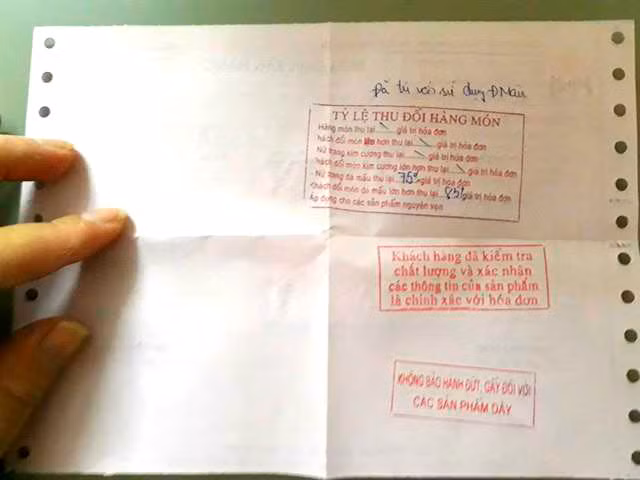 Đã tư vấn sử dụng
TỶ LỆ THU ĐỔI HÀNG MÓN
Hàng món thu lại giá trị hóa đơn
khách đổi món lớn hơn thu lại giá trị hóa đơn
Nữ trang kim cương thu lại giá trị hóa đơn
khách đổi món kim cương lớn hơn thu lại giá trị hóa đơn
Nữ trang đá mầu thu lại 75% giá trị hóa đơn
Khách đổi món đá mầu lớn hơn thu lại 85% giá trị hóa đơn
Áp dụng cho các sản phẩm nguyên vẹn
Khách hàng đã kiểm tra
chất lượng và xác nhận
các thông tin của sản phẩm
là chính xác với hóa đơn
KHÔNG BẢO HÀNH ĐỨT, GÃY ĐỐI VỚI
CÁC SẢN PHẨM DÂY